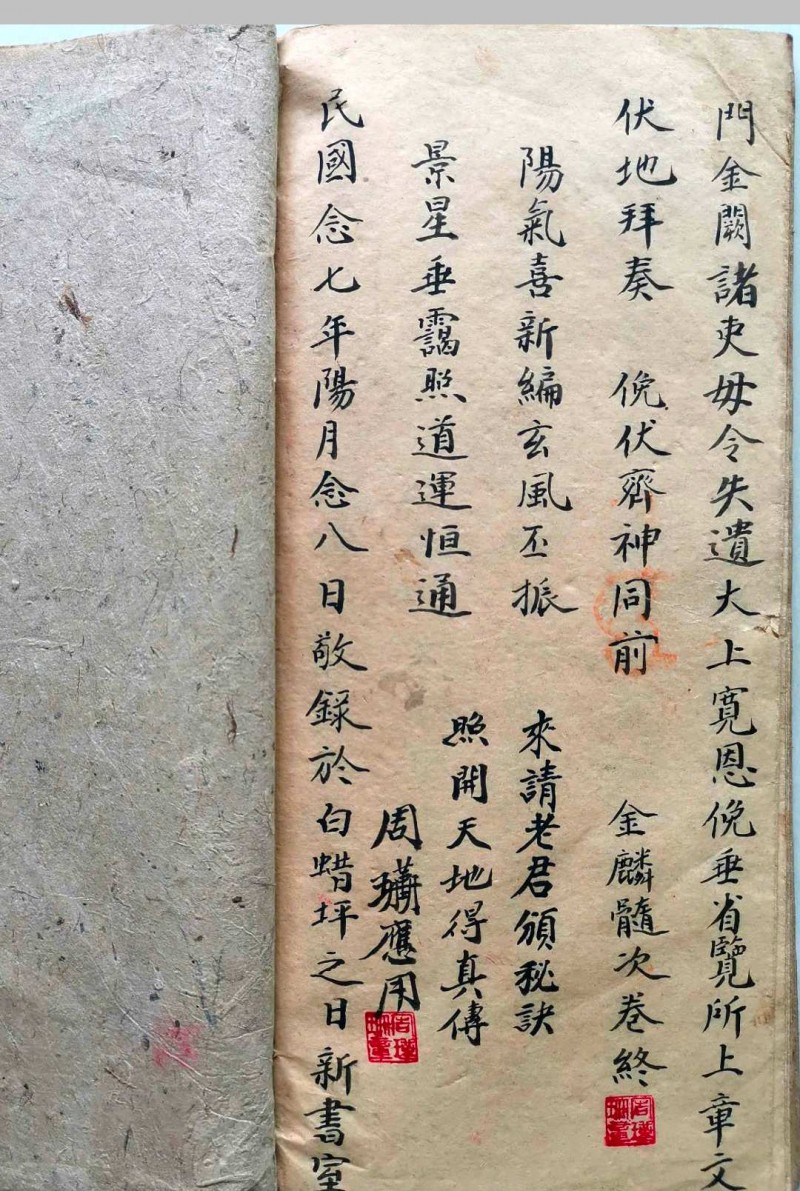 門金闕諸吏毋令失遺大上寬恩俛垂省覽所上章文
伏地拜奏 俛伏齊神同前 金麟髓次卷終
陽氣喜新編玄風丕振
來請老君頒秘訣
景星垂靄照道運恒通
照開天地得真傳
周 應用
民國念七年陽月念八日敬錄於白蜡坪之日新書室